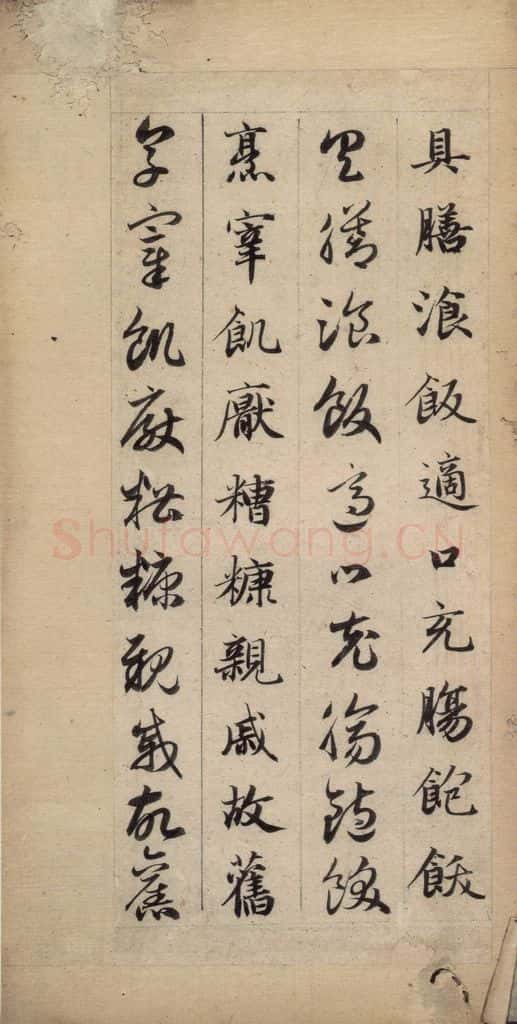 具膳湌飯適口充腸飽飫
具膳湌飯適口充腸飽飫
烹宰飢厭糟糠親戚故舊
烹宰飢厭糟糠親戚故舊
Shufawang.CN